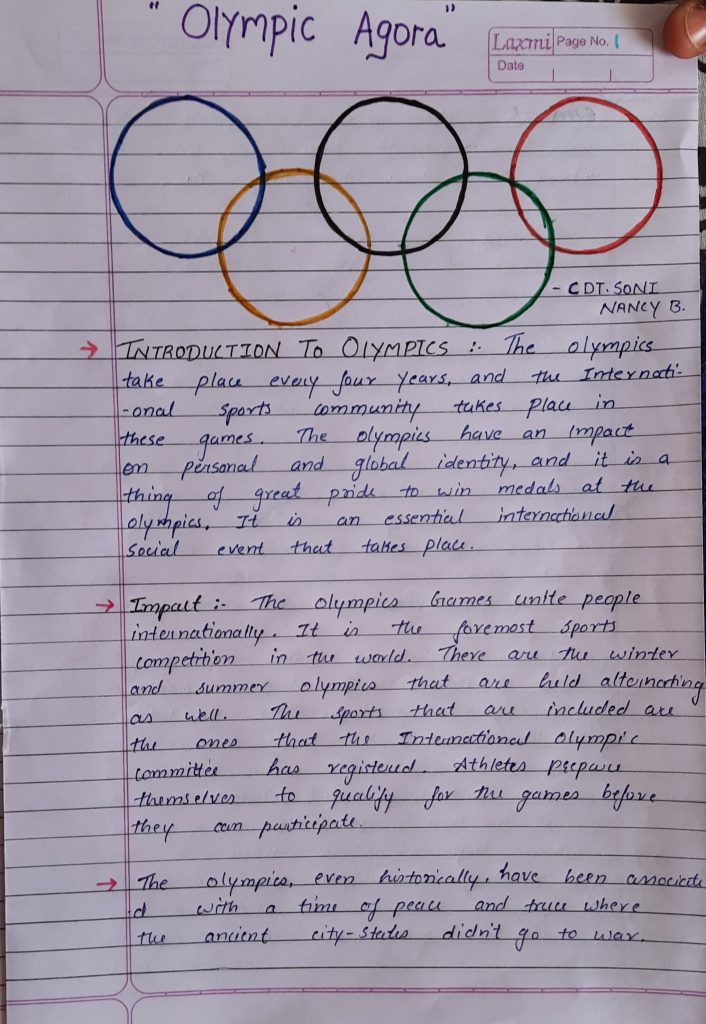 "Olympic Agora"
Laxmi Page No. 1
Date
- CDT. SONI
NANCY B.
→ INTRODUCTION TO OLYMPICS :- The olympics
take place every four years, and the Internati-
-onal sports community takes place in
these games. The olympics have an impact
on personal and global identity, and it is a
thing of great pride to win medals at the
olympics. It is an essential international
social event that takes place.
→ Impact :- The olympics Games unite people
internationally. It is the foremost sports
competition in the world. There are the winter
and summer olympics that are held alternating
as well. The sports that are included are
the ones that the International olympic
committee has registered. Athletes prepare
themselves to qualify for the games before
they can participate.
→ The olympics, even historically, have been associate
d with a time of peace and truce where
the ancient city-states didn't go to war.